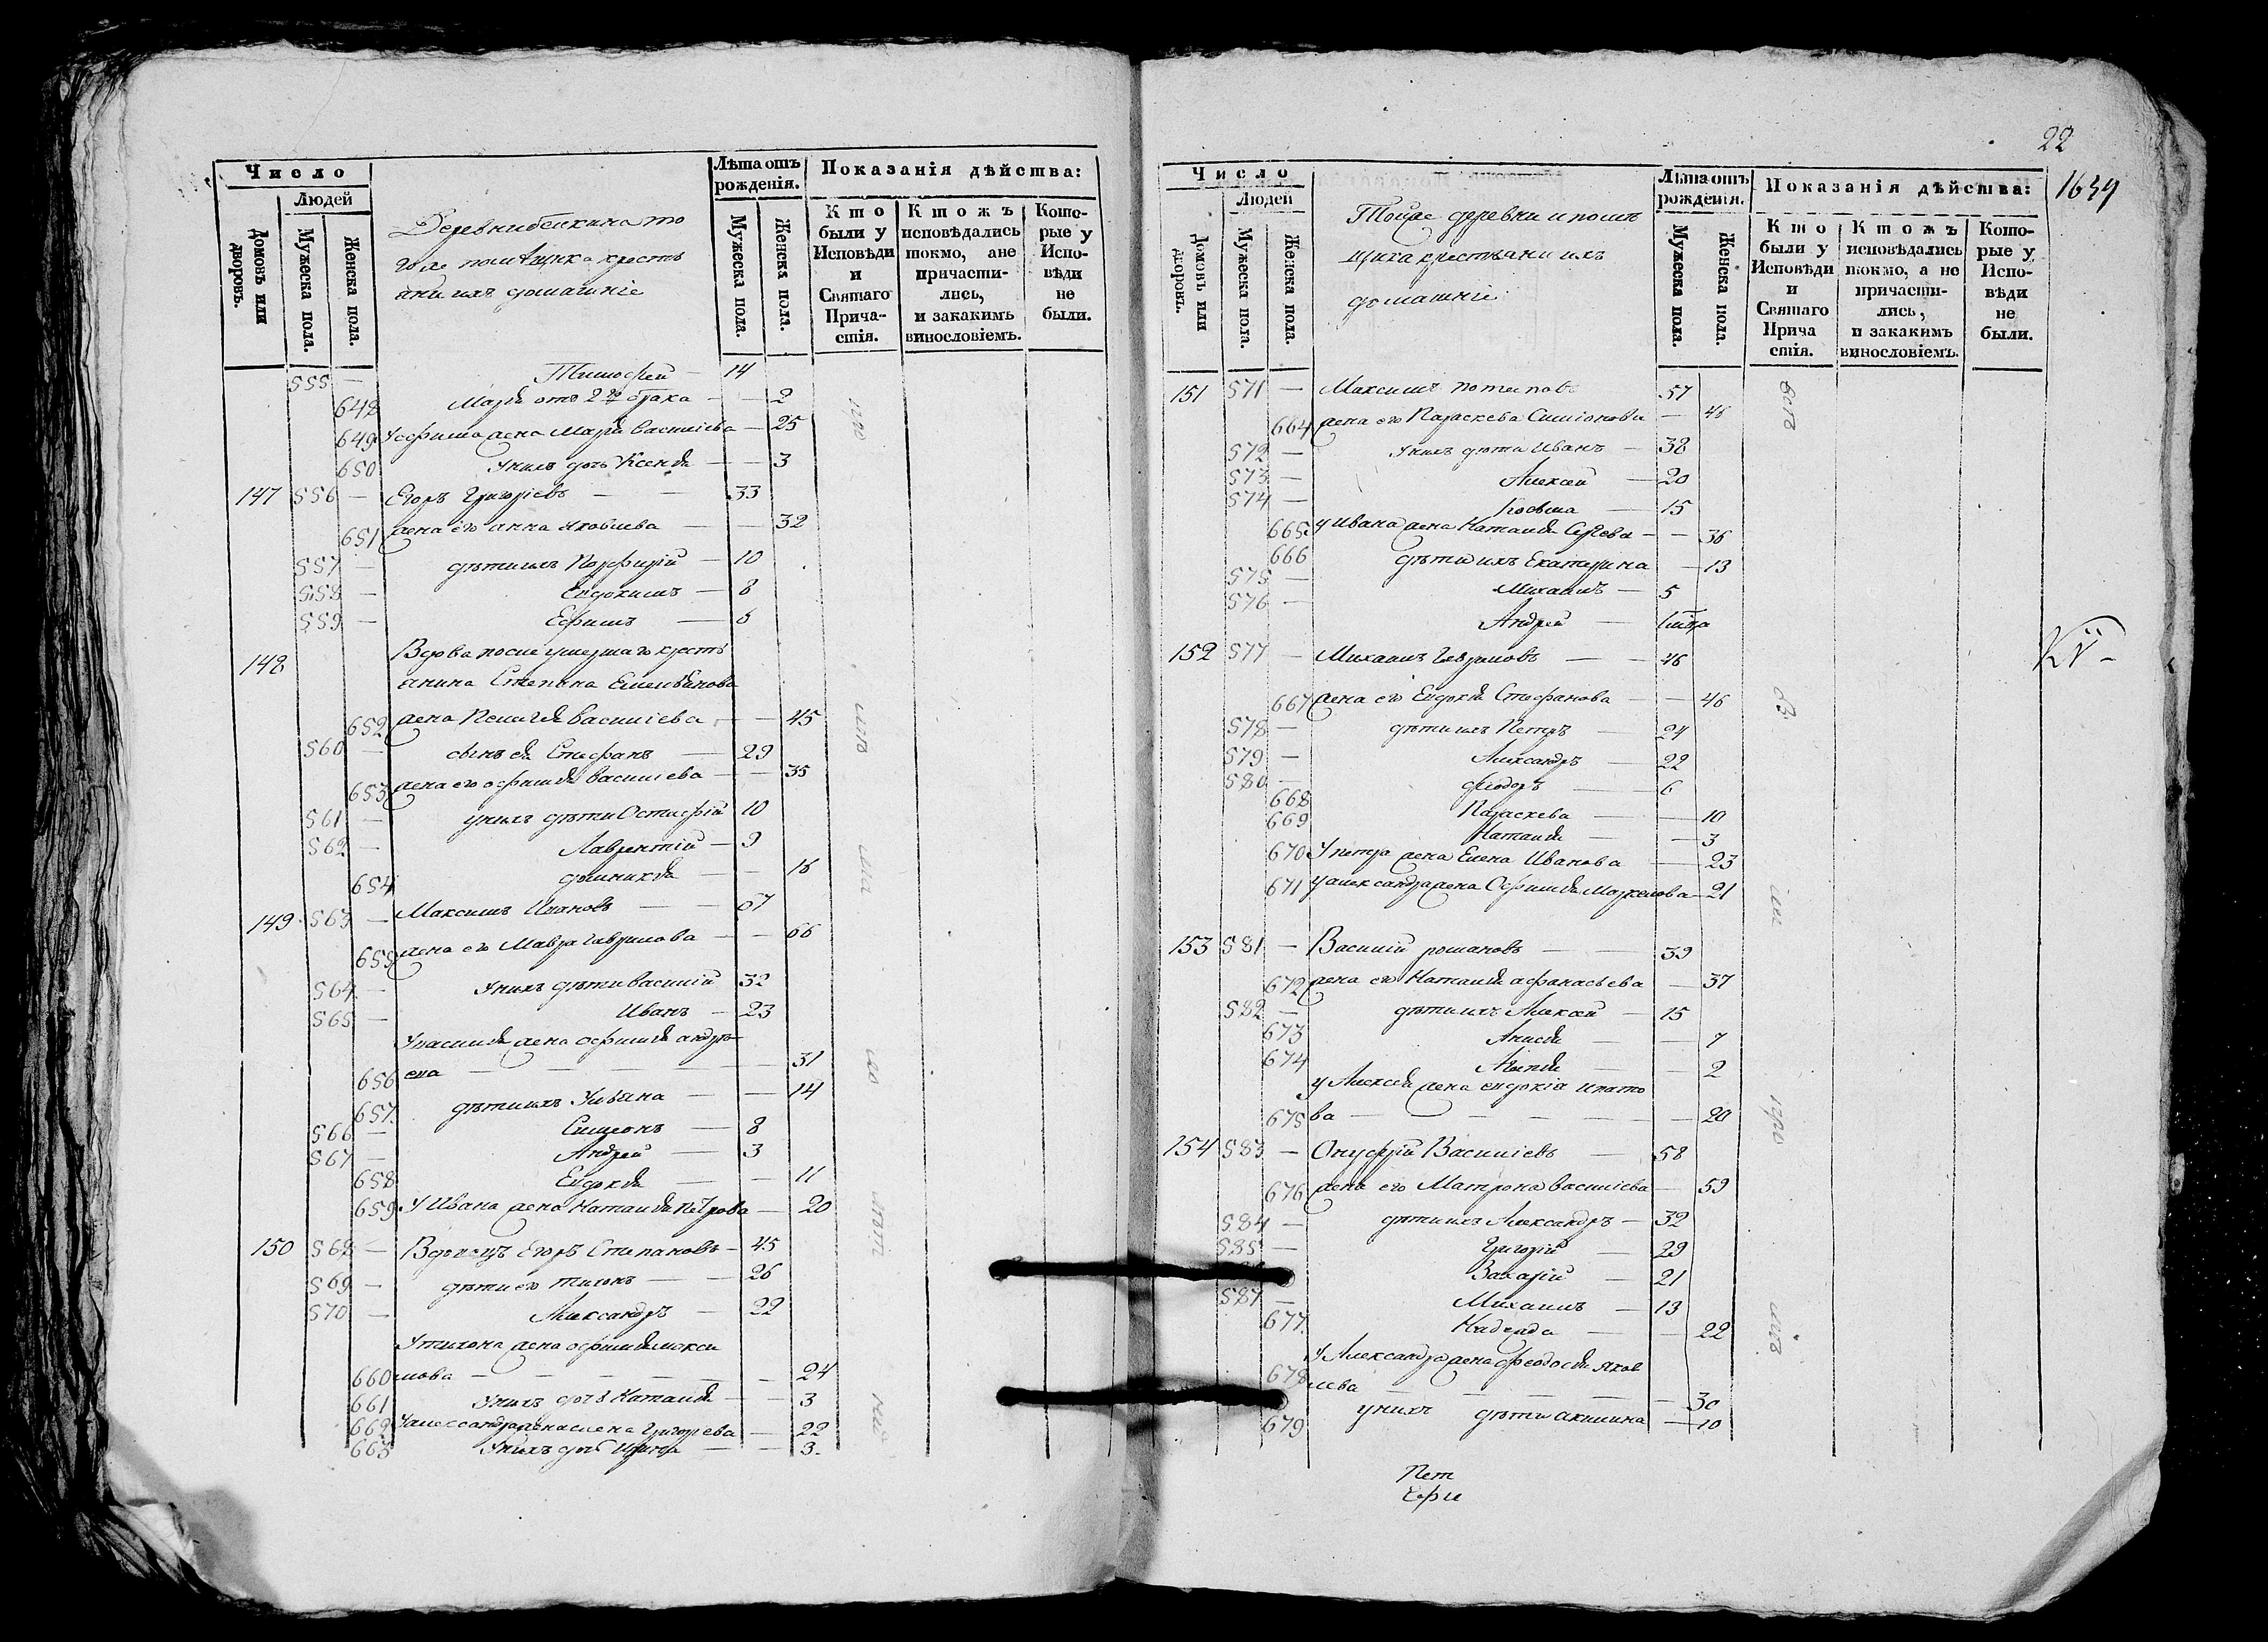 Число
Людей
Домовъ или дворовъ.
Мужеска пола.
Женска пола.
того же помѣщика кресть
яни ихъ домашнiе
Лѣта отъ рожденія.
Мужеска пола.
Женска пола.
Показанія дѣйства:
Кто были у Исповѣди и Святаго Причастія.
Кто жъ исповѣдались токмо, а не причастились, и за какимъ винословіемъ.
Которые у Исповѣди не были.
555 — Тимофей — 14
648 Марiя отъ 2го брака — — 2
649 жена Марiя Василiева — 25
650 у нихъ дочь Ксенiя — — 3
147 556 — Егоръ Григорiевъ — — 33
651 жена его Анна Яковлева — — 32
557 — дѣти ихъ Порфирiй — 10
558 — Евдокимъ — 8
559 — Ефимъ — 6
148 Вдова после умершаго кресть
янина Степана Емельянова
652 жена Пелагея Василiева — — 45
560 — сынъ ея Стефанъ — 29
653 жена его Офимiя Василiева — — 35
561 — у нихъ дѣти Остафiй 10
562 — Лаврентiй — 9
654 Домникiя — — 16
149 563 — Максимъ Ивановъ — — 67
655 жена его Мавра Гаврилова — — 66
564 — у нихъ дѣти Василiй 32
565 — Иванъ — 23
У Василiя жена Офимiя Андрѣ
656 ева — — — — — 31
657 дѣти ихъ Ульяна — — 14
566 — Симеонъ — 8
567 — Андрей — 3
658 Евдокiя — — 11
659 У Ивана жена Наталiя Петрова — 20
150 568 — Вдовецъ Егоръ Степановъ — 45
569 — дѣти его Тихонъ — — 26
570 — Александръ — 22
У Тихона жена Офимiя Макси
660 мова — — — — — 24
661 у нихъ дочь Наталiя — — 3
662 У Александра жена Елена Григорьева — 22
663 у нихъ дочь Ирина — — 3
22
1639
Число
Людей
Домовъ или дворовъ.
Мужеска пола.
Женска пола.
Тойже деревни и помѣ
щика крестьяни ихъ
домашнiе
Лѣта отъ рожденія.
Мужеска пола.
Женска пола.
Показанія дѣйства:
Кто были у Исповѣди и Святаго Причастія.
Кто жъ исповѣдались токмо, а не причастились, и за какимъ винословіемъ.
Которые у Исповѣди не были.
151 571 — Максимъ Потаповъ 57
664 жена его Параскева Симiонова — 46
572 — у нихъ дѣти Иванъ — 38
573 — Алексей — 20
574 — Косьма — 15
665 у Ивана жена Наталiя Сергѣева — — 36
666 дѣти ихъ Екатерина — 13
575 — Михаилъ — 5
576 — Андрей —
152 577 — Михаилъ Гавриловъ — — 46
667 жена его Евдокiя Стефанова — — 46
578 — дѣти ихъ Петръ — 24
579 — Александръ — 22
580 — Феодоръ — 6
668 Параскева — — 10
669 Наталiя — — 3
670 У Петра жена Елена Иванова — 23
671 У Александра жена Офимiя Маркелова — 21
153 581 — Василiй Романовъ — — 39
672 жена его Наталiя Афанасьева — 37
582 — дѣти ихъ Алексей — 15
673 Анисiя — — 7
674 — — 2
у Алексея жена Евдокiя Ипато
675 ва — — — — — — 20
154 583 — Онуфрiй Василiевъ — 58
676 жена его Матрона Василiева — 59
584 — дѣти ихъ Александръ — 32
585 — Григорiй — 29
Захарiй — 21
587 — Михаилъ — 13
677 Надежда — — 22
У Александра жена Феодосiя Яков
678 лева — — — — — 30
679 у нихъ дѣти Акилина — 10
Пет